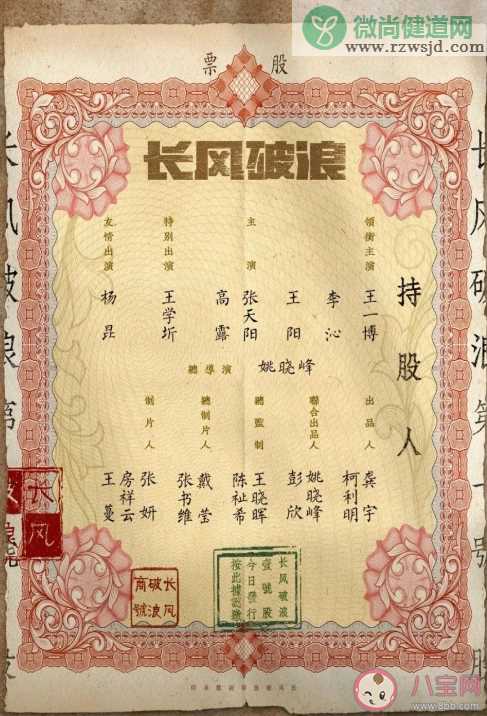 微尚健道网
www.rzwsjd.com
股票
长风破浪
持股人
領銜主演
王一博
李沁
主演
王阳
张天阳
高露
特別出演
王学圻
友情出演
杨昆
總導演 姚晓峰
出品人
龚宇
柯利明
聯合出品人
姚晓峰
彭欣
總監制
王晓晖
陈祉希
總制片人
戴莹
张书维
制片人
张妍
房祥云
王蔓
长风破浪第一號
长风破浪
壹號股
今日發行
长风
破浪
商號
长风
八宝网
www.8bb.com